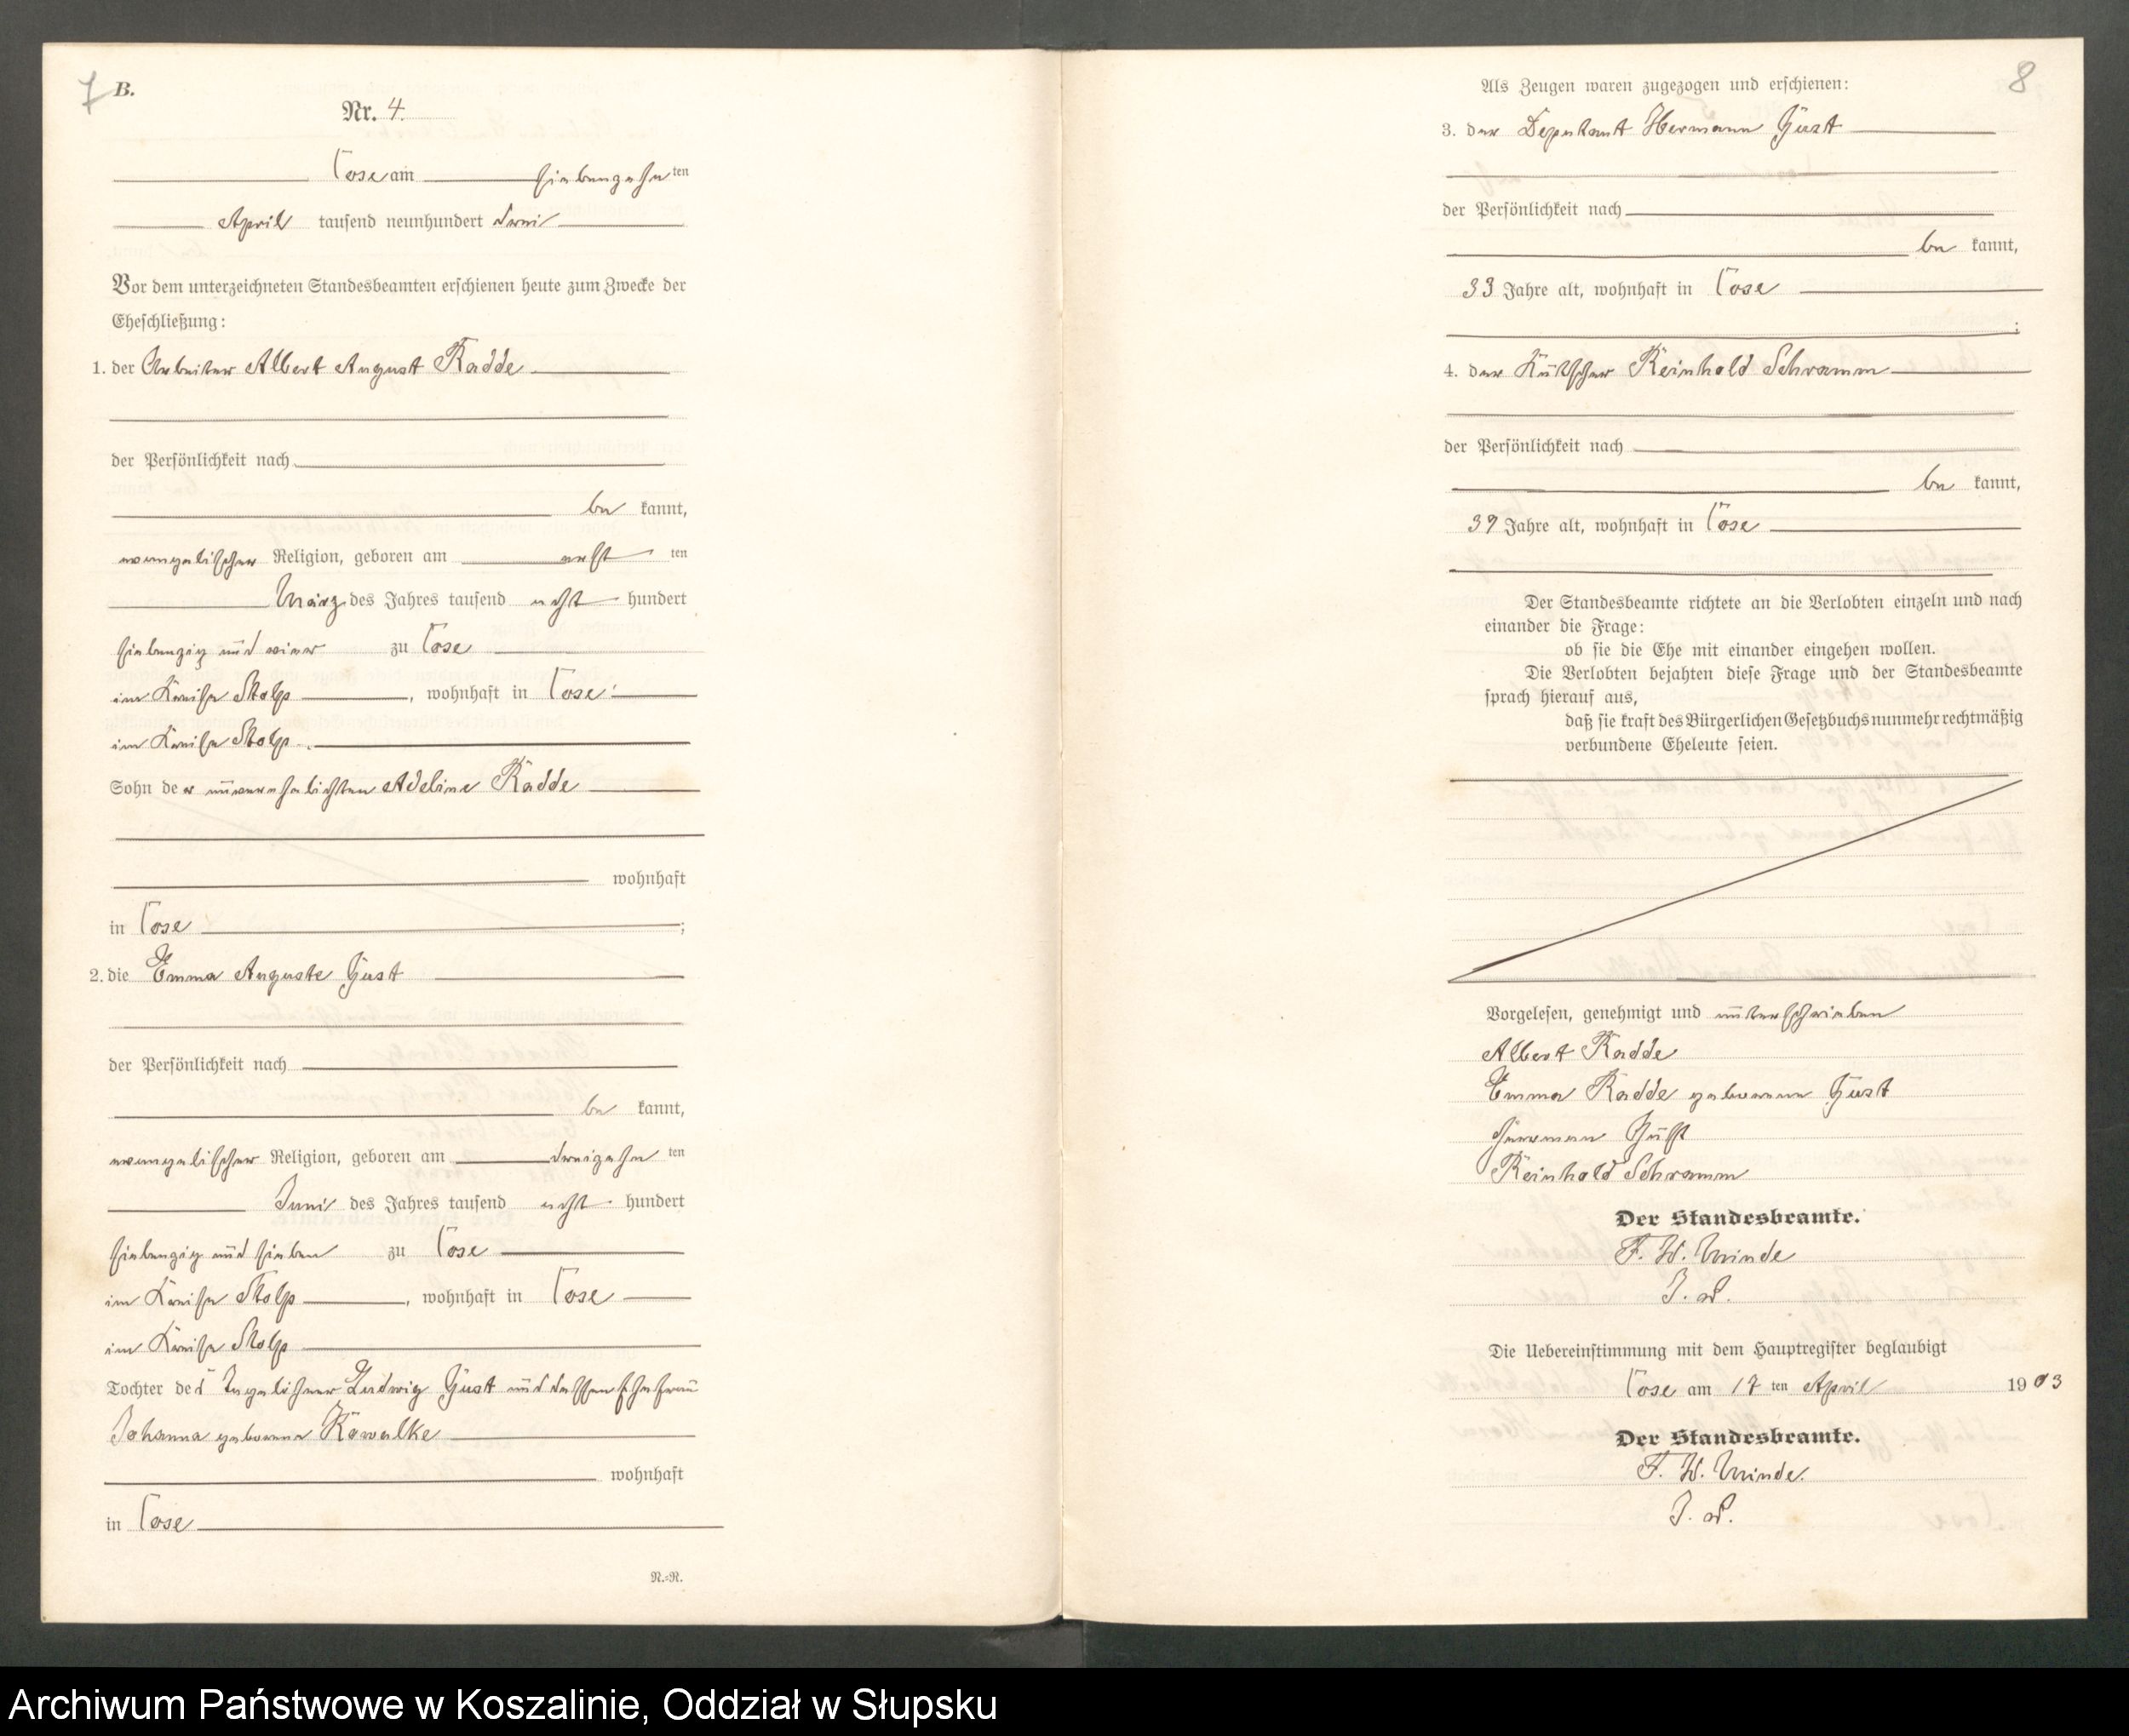 7 B.
Nr. 4.
Cose am siebenzehnten
April tausend neunhundert drei
Vor dem unterzeichneten Standesbeamten erschienen heute zum Zwecke der
Eheschließung:
1. der Arbeiter Albert August Radde
der Persönlichkeit nach
be kannt,
evangelischer Religion, geboren am erst ten
März des Jahres tausend acht hundert
siebenzig und vier zu Cose
im Kreise Stolp, wohnhaft in Cose
im Kreise Stolp
Sohn der unverehelichten Adeline Radde
wohnhaft
in Cose;
2. die Emma Auguste Gust
der Persönlichkeit nach
be kannt,
evangelischer Religion, geboren am dreizehn ten
Juni des Jahres tausend acht hundert
siebenzig und sieben zu Cose
im Kreise Stolp, wohnhaft in Cose
im Kreise Stolp
Tochter des Ludwig Gust und dessen Ehefrau
Johanna geborene Kowalke
wohnhaft
in Cose
N.-R.
8
Als Zeugen waren zugezogen und erschienen:
3. der Deputant Hermann Gust
der Persönlichkeit nach
be kannt,
33 Jahre alt, wohnhaft in Cose
;
4. der Kutscher Reinhold Schramm
der Persönlichkeit nach
be kannt,
39 Jahre alt, wohnhaft in Cose
Der Standesbeamte richtete an die Verlobten einzeln und nach
einander die Frage:
ob sie die Ehe mit einander eingehen wollen.
Die Verlobten bejahten diese Frage und der Standesbeamte
sprach hierauf aus,
daß sie kraft des Bürgerlichen Gesetzbuchs nunmehr rechtmäßig
verbundene Eheleute seien.
Vorgelesen, genehmigt und unterschrieben
Albert Radde
Emma Radde geborene Gust
Herrman Gust
Reinhold Schramm
Der Standesbeamte.
F. W. Minde
Die Uebereinstimmung mit dem Hauptregister beglaubigt
Cose am 17 ten April 1903
Der Standesbeamte.
F. W. Minde.
Archiwum Państwowe w Koszalinie, Oddział w Słupsku